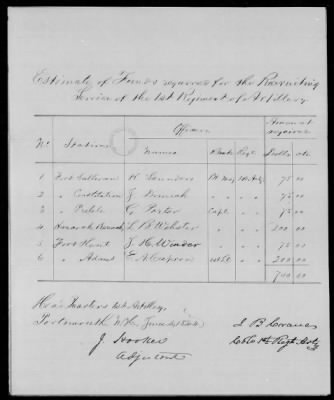 Estimate of Funds required for the Recruiting
Service of the 1st Regiment of Artillery
No. Station Officers Amount required
Names Rank Regt. Dolls. cts
1 Fort Sullivan Saunders Bt Maj 75 00
2 " Constitution Dimick 75 00
3 " Preble G Porter Capt. 75 00
4 Hancock Barracks L B Webster 200 00
5 Fort Kent J. H. Winder 75 00
6 " Adams 1st Lt. 200.00
700 00
Head Quarters 1st Artillery,
Portsmouth N.H. June
J. Hooker
Adjutant
I B Crane
Col 1st Regt Arty